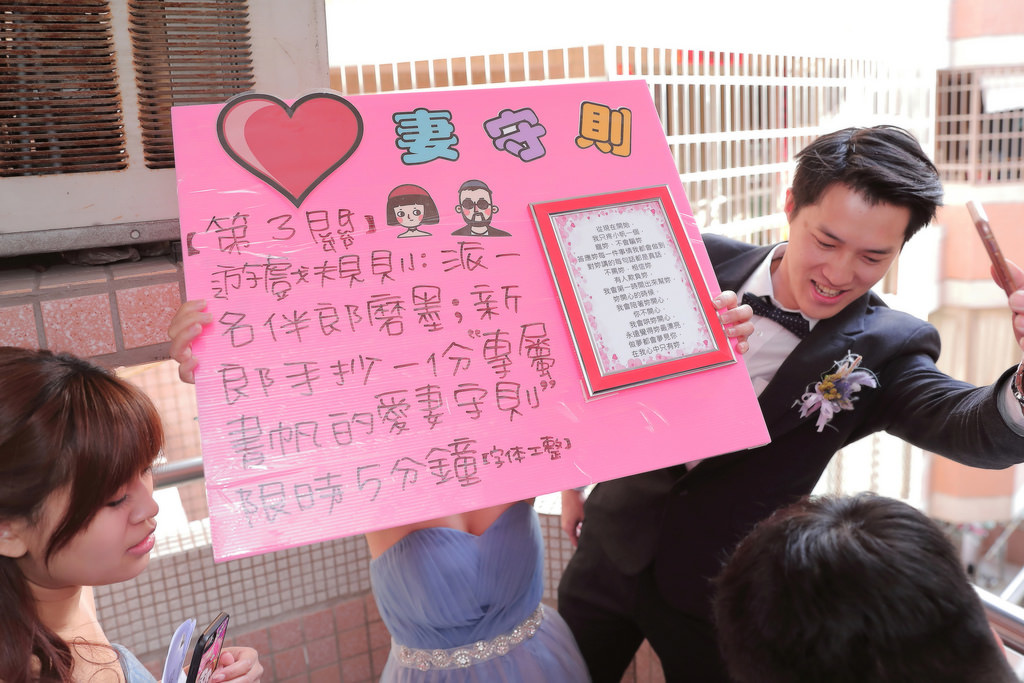 妻守則
【第3關】
遊戲規則:派一
名伴郎磨墨;新
郎手抄一份“專屬
書帆的愛妻守則”
限時5分鐘【字体工整】
從現在開始,
我只疼小帆一個,
寵妳、不會騙妳,
答應妳每一件事情我都會做到
對妳講的每句話都是真話,
不罵妳、相信妳,
有人欺負妳,
我會第一時間出來幫妳,
妳開心的時候,
我會陪著妳開心,
你不開心,
我會哄妳開心,
永遠覺得妳最漂亮,
做夢都會夢見妳,
在我心中只有妳。